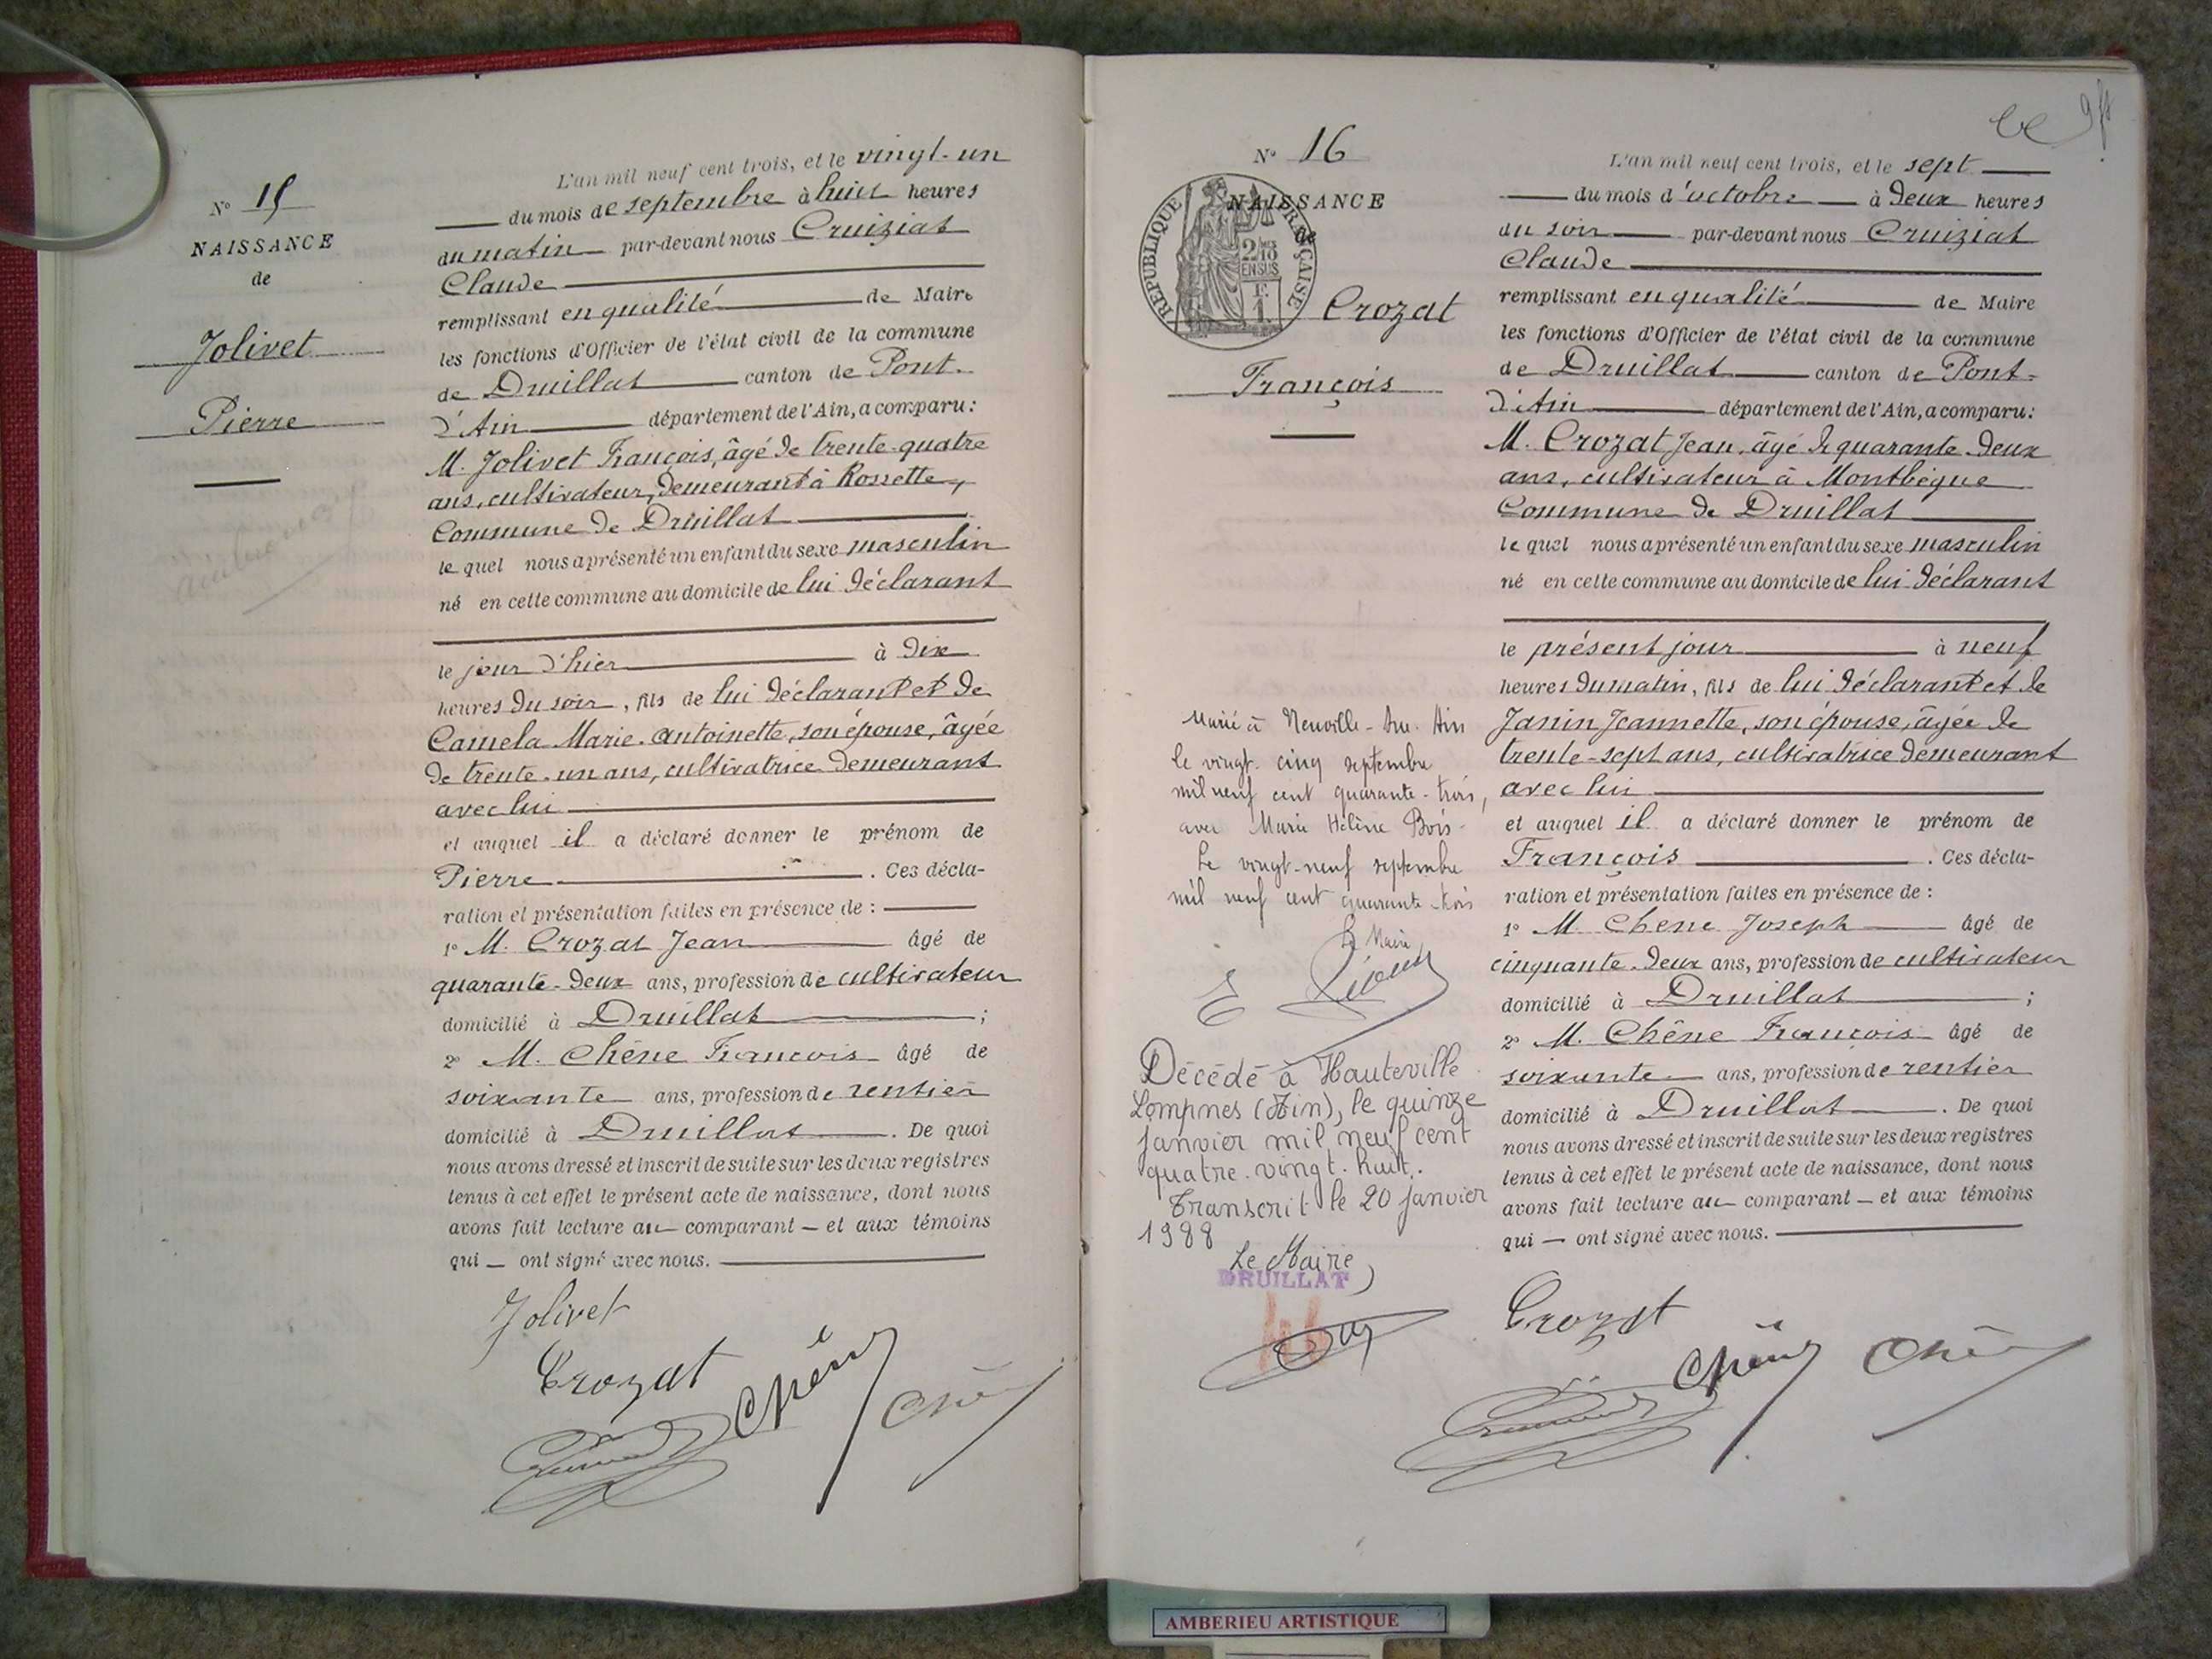 N° 15
NAISSANCE
de
Jolivet
Pierre
L'an mil neuf cent trois, et le vingt-un
du mois de septembre à huit heures
du matin par-devant nous Cruiziat
Claude
remplissant en qualité de Maire
les fonctions d'Officier de l'état civil de la commune
de Druillat canton de Pont-
d'Ain département de l'Ain, a comparu:
M. Jolivet François, âgé de trente-quatre
ans, cultivateur, demeurant à Rossette,
Commune de Druillat
le quel nous a présenté un enfant du sexe masculin
né en cette commune au domicile de lui déclarant
le jour d'hier à dix
heures du soir, fils de lui déclarant et de
Camela Marie-Antoinette, son épouse, âgée
de trente-un ans, cultivatrice demeurant
avec lui
et auquel il a déclaré donner le prénom de
Pierre. Ces décla-
ration et présentation faites en présence de :
1° M. Crozat Jean âgé de
quarante-deux ans, profession de cultivateur
domicilié à Druillat ;
2° M. Chêne François âgé de
soixante ans, profession de rentier
domicilié à Druillat. De quoi
nous avons dressé et inscrit de suite sur les deux registres
tenus à cet effet le présent acte de naissance, dont nous
avons fait lecture au comparant — et aux témoins
qui — ont signé avec nous.
Jolivet
Crozat
Chêne
N° 16
NAISSANCE
de
RÉPUBLIQUE FRANÇAISE
2/10
EN SUS
F.
1.
Crozat
François
L'an mil neuf cent trois, et le sept
du mois d'octobre à deux heures
du soir par-devant nous Cruiziat
Claude
remplissant en qualité de Maire
les fonctions d'Officier de l'état civil de la commune
de Druillat canton de Pont-
d'Ain département de l'Ain, a comparu:
M. Crozat Jean, âgé de quarante-deux
ans, cultivateur à Montbègue
Commune de Druillat
le quel nous a présenté un enfant du sexe masculin
né en cette commune au domicile de lui déclarant
le présent jour à neuf
heures du matin, fils de lui déclarant et de
Janin Jeannette, son épouse, âgée de
trente-sept ans, cultivatrice demeurant
avec lui
et auquel il a déclaré donner le prénom de
François. Ces décla-
ration et présentation faites en présence de :
1° M. Chene Joseph âgé de
cinquante-deux ans, profession de cultivateur
domicilié à Druillat ;
2° M. Chêne François âgé de
soixante ans, profession de rentier
domicilié à Druillat. De quoi
nous avons dressé et inscrit de suite sur les deux registres
tenus à cet effet le présent acte de naissance, dont nous
avons fait lecture au comparant — et aux témoins
qui — ont signé avec nous.
Crozat
Chêne
Marié à Neuville-sur-Ain
le vingt-cinq septembre
mil neuf cent quarante-trois,
avec Marie Hélène Bois.
Le vingt-neuf septembre
mil neuf cent quarante-trois
Le Maire
Décédé à Hauteville
Lompnes (Ain), le quinze
janvier mil neuf cent
quatre-vingt-huit.
Transcrit le 20 janvier
1988
Le Maire
DRUILLAT
AMBERIEU ARTISTIQUE